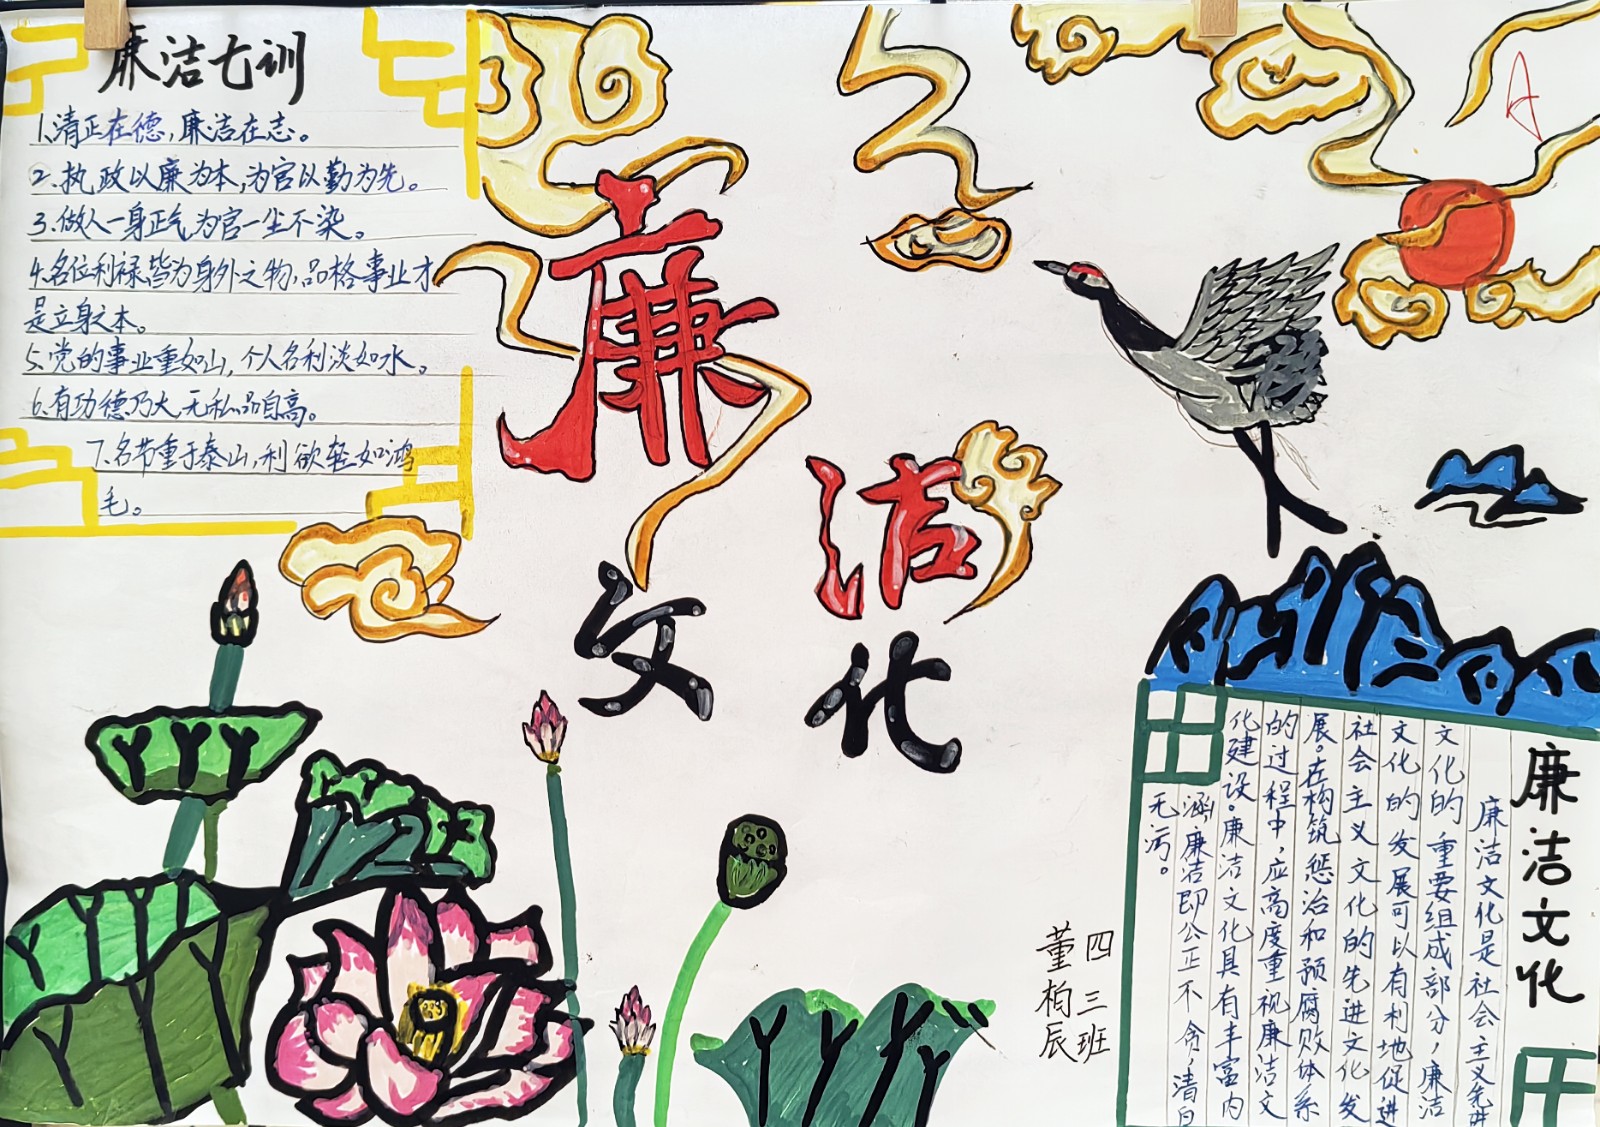 廉洁七训
1.清正在德，廉洁在志。
2.执政以廉为本，为官以勤为先。
3.做人一身正气为官一尘不染。
4.名位利禄皆为身外之物，品格事业才
是立身之本。
5.党的事业重如山，个人名利淡如水。
6.有功德乃大无私品自高。
7.名节重于泰山，利欲轻如鸿
毛。
廉洁
文化
A
廉洁文化
廉洁文化是社会主义先进
文化的重要组成部分，廉洁
文化的发展可以有利地促进
社会主义文化的先进文化发
展。在构筑惩治和预腐败体系
的过程中，应高度重视廉洁文
化建设。廉洁文化具有丰富内
涵，廉洁即公正不贪，清白
无污。
四三班
董柏辰